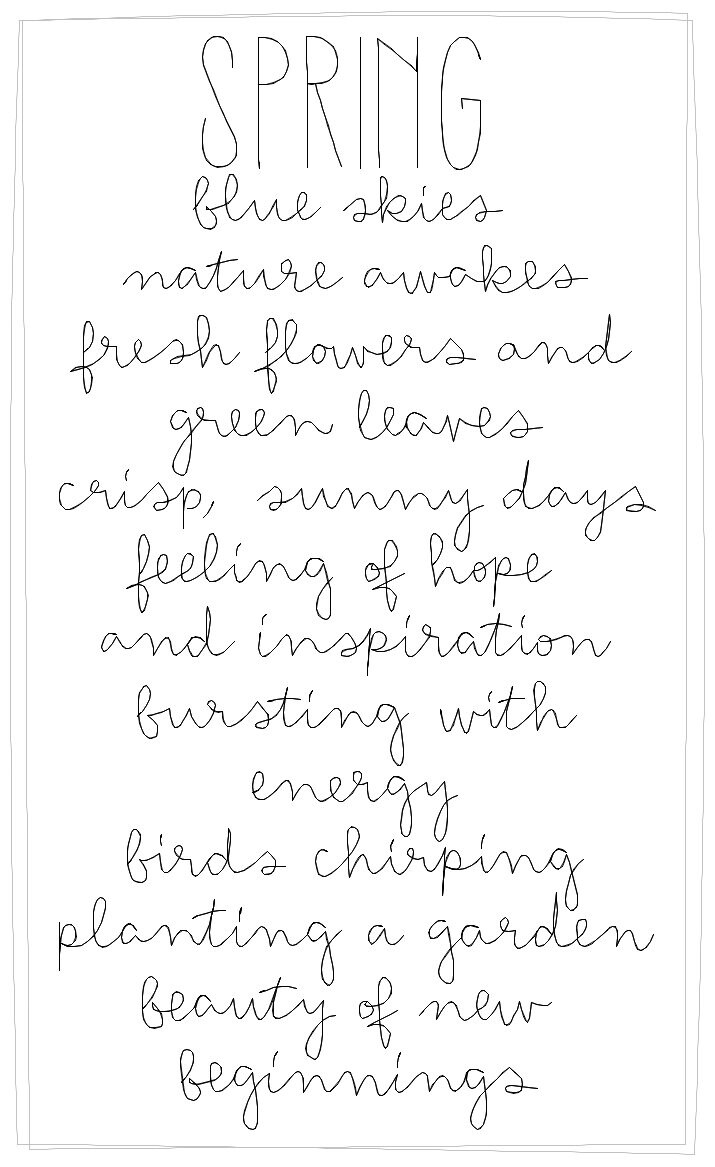 SPRING
blue skies
nature awakes
fresh flowers and
green leaves
crisp, sunny days
feeling of hope
and inspiration
bursting with
energy
birds chirping
planting a garden
beauty of new
beginnings